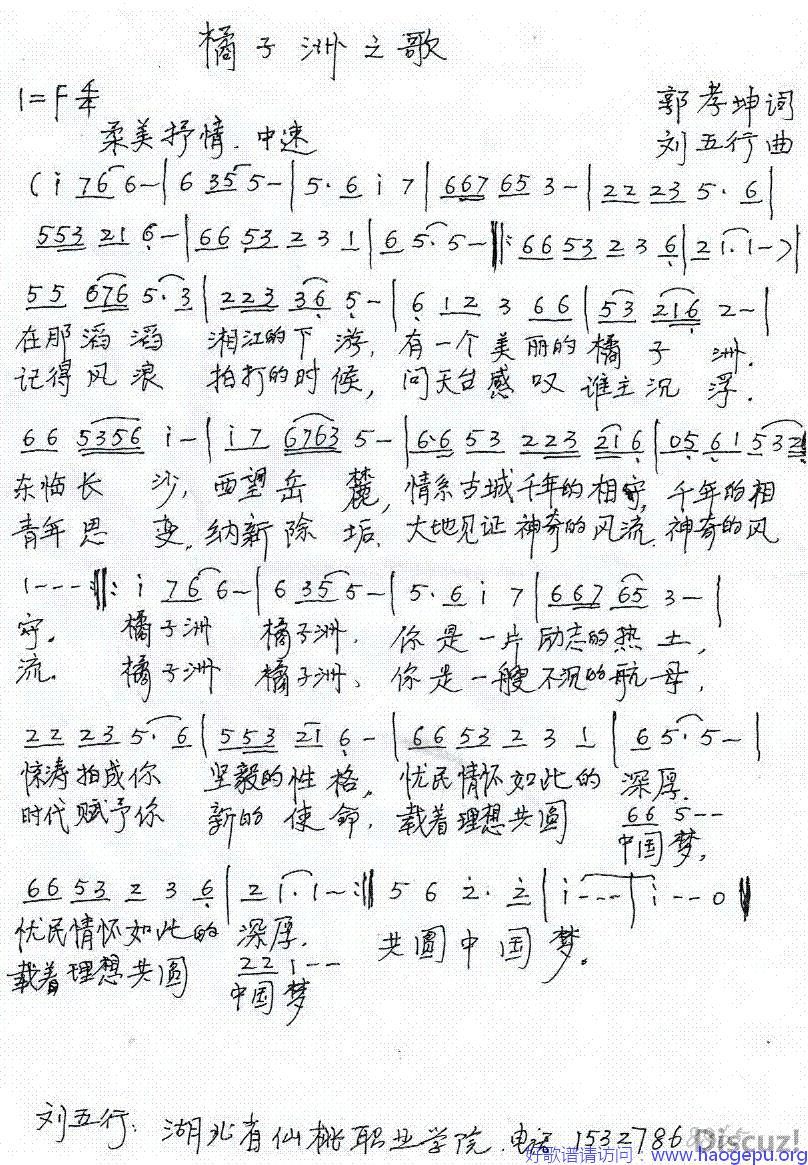 橘子洲之歌
1=F 4/4
郭孝坤词
柔美抒情.中速
刘五行曲
(i 766-|6 355-|5.6 i 7|667 65 3-|22 23 5.6|
553 21 6-|66 53 2 3 1|6 5.5-‖:66 53 2 3 6|2 1.1-)|
55 676 5.3|223 36 5-|6 12 3 66|53 216 2-|
在那滔滔 湘江的下游,有一个美丽的橘子洲.
记得风浪 拍打的时候,问天台感叹谁主沉浮.
66 5356 i-|i7 6763 5-|6.6 53 223 216|05 61 532
东临长沙,西望岳麓,情系古城千年的相守,千年的相
青年思变,纳新除垢.大地见证神奇的风流.神奇的风
1---:‖:i 766-|6 355-|5.6 i 7|667 65 3-|
守. 橘子洲 橘子洲.你是一片励志的热土,
流. 橘子洲 橘子洲、你是一艘不沉的航母,
22 23 5.6|553 21 6-|66 53 2 3 1|6 5.5-|
惊涛拍成你 坚毅的性格,忧民情怀如此的 深厚.
时代赋予你 新的使命,载着理想共圆 66 5--
中国梦.
66 53 2 3 6|2 1.1-:‖ 5 6 2.2|i---|i--0‖
忧民情怀如此的 深厚. 共圆中国梦。
载着理想共圆 22 1--
中国梦
刘五行:湖北省仙桃职业学院.电话 15327786
Discuz!
好歌谱请访问:www.haogepu.org